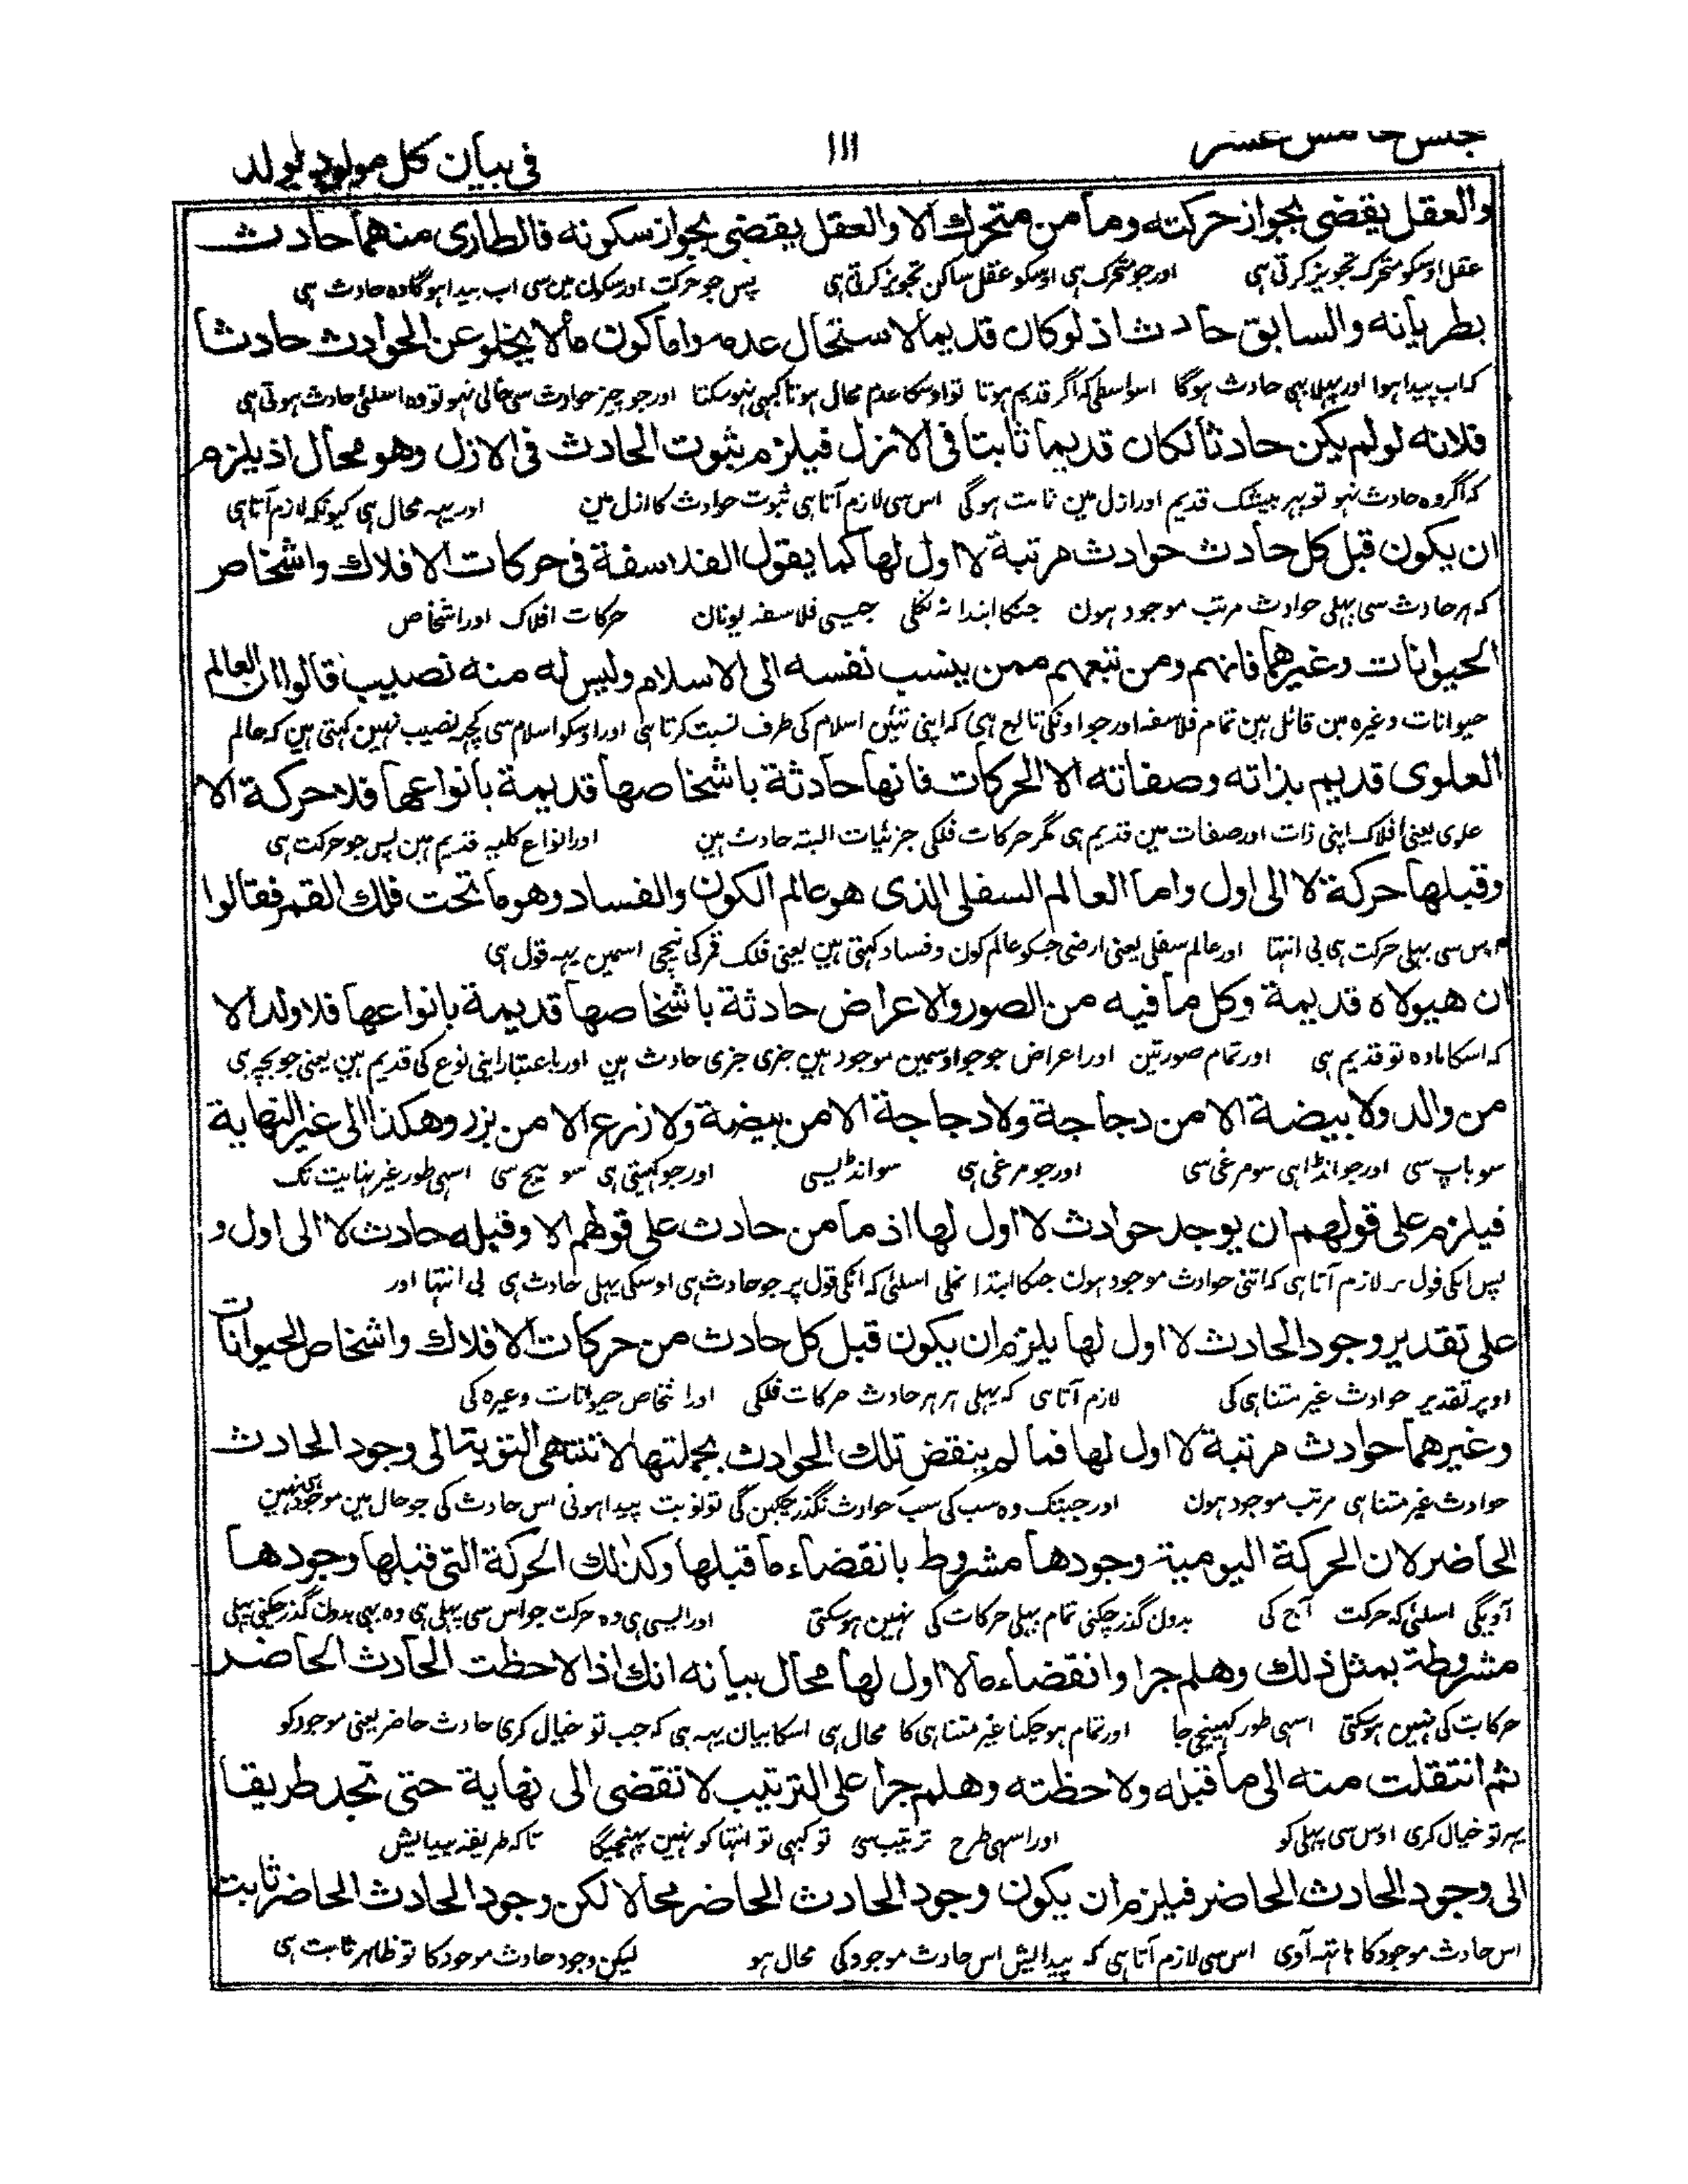 مجلس خامس عشر ١١١ فى بيان كل مولود يولد
والعقل يقضى بجواز حركته وما من متحرك الا والعقل يقضى بجواز سكونه فالطارى منهما حادث
عقل اوسكو متحرک تجویز کرتی ہی اور جو متحرک ہی اوسکو عقل ساکن تجویز کرتی ہی پس جو حرکت اور سکون میں سی اب پیدا ہوگا وہ حادث ہی
بطريانه والسابق حادث اذ لو كان قديما لاستحال عدمه واما كون ما لا يخلو عن الحوادث حادثا
کہ اب پیدا ہوا اور پہلا بہی حادث ہوگا اسواسطی کہ اگر قدیم ہوتا تو اوسکا عدم محال ہوتا کبہی نہو سکتا اور جو چیز حوادث سی خالی نہو تو وہ اسلئی حادث ہوتی ہی
فلانه لو لم يكن حادثا لكان قديما ثابتا فى الازل فيلزم ثبوت الحادث فى الازل وهو محال اذ يلزم
کہ اگر وہ حادث نہو تو پہر بیشک قدیم اور ازل مین ثابت ہوگی اس سی لازم آتا ہی ثبوت حوادث کا ازل مین اور یہہ محال ہی کیونکہ لازم آتا ہی
ان يكون قبل كل حادث حوادث مرتبة لا اول لها كما يقول الفلاسفة فى حركات الافلاك واشخاص
کہ ہر حادث سی پہلی حوادث مرتب موجود ہون جنکا ابتدا نہ نکلی جیسی فلاسفہ یونان حرکات افلاک اور اشخاص
الحيوانات وغيرهما فانهم ومن تبعهم ممن ينسب نفسه الى الاسلام وليس له منه نصيب قالوا ان العالم
حیوانات وغیرہ مین قائل ہین تمام فلاسفہ اور جو اونکی تابع ہی کہ اپنی تئین اسلام کی طرف نسبت کرتا ہی اور اوسکو اسلام سی کچہہ نصیب نہین کہتی ہین کہ عالم
العلوى قديم بذاته وصفاته الا الحركات فانها حادثة باشخاصها قديمة بانواعها فلا حركة الا
علوی یعنی افلاک اپنی ذات اور صفات مین قدیم ہی مگر حرکات فلکی جزئیات البتہ حادث ہین اور انواع کلیہ قدیم ہین پس جو حرکت ہی
وقبلها حركة لا الى اول واما العالم السفلى الذى هو عالم الكون والفساد وهو ما تحت فلك القمر فقالوا
اس سی پہلی حرکت ہی بی انتہا اور عالم سفلی یعنی ارضی جسکو عالم کون و فساد کہتی ہین یعنی فلک قمر کی نیچی اسمین یہہ قول ہی
ان هيولاه قديمة وكل ما فيه من الصور والاعراض حادثة باشخاصها قديمة بانواعها فلا ولد الا
کہ اسکا مادہ تو قدیم ہی اور تمام صورتین اور اعراض جو جو اوسمین موجود ہین جزی جزی حادث ہین اور باعتبار اپنی نوع کی قدیم ہین یعنی جو بچہ ہی
من والد ولا بيضة الا من دجاجة ولا دجاجة الا من بيضة ولا زرع الا من بزر وهكذا الى غير النهاية
سو باپ سی اور جو انڈا ہی سو مرغی سی اور جو مرغی ہی سو انڈیسی اور جو کہیتی ہی سو بیج سی اسہی طور غیر نہایت تک
فيلزم على قولهم ان يوجد حوادث لا اول لها اذ ما من حادث على قولهم الا وقبله حادث لا الى اول و
پس انکی قول پر لازم آتا ہی کہ اتنی حوادث موجود ہون جنکا ابتدا نکلی اسلئی کہ انکی قول پر جو حادث ہی اوسکی پہلی حادث ہی بی انتہا اور
على تقدير وجود الحادث لا اول لها يلزم ان يكون قبل كل حادث من حركات الافلاك واشخاص الحيوانات
اوپر تقدیر حوادث غیر متناہی کی لازم آتا ہی کہ پہلی ہر ہر حادث حرکات فلکی اور اشخاص حیوانات وغیرہ کی
وغيرهما حوادث مرتبة لا اول لها فما لم ينقض تلك الحوادث بجملتها لا تنتهى النوبة الى وجود الحادث
حوادث غیر متناہی مرتب موجود ہون اور جبتک وہ سب کی سب حوادث نگذر چکین گی تو نوبت پیدا ہونی اس حادث کی جو حال مین موجود ہی نہین
الحاضر لان الحركة اليومية وجودها مشروط بانقضاء ما قبلها وكذلك الحركة التى قبلها وجودها
آویگی اسلئی کہ حرکت آج کی بدون گذر چکنی تمام پہلی حرکات کی نہین ہوسکتی اور ایسی ہی وہ حرکت جو اس سی پہلی ہی وہ بہی بدون گذر چکنی پہلی
مشروطة بمثل ذلك وهلم جرا وانقضاء ما لا اول لها محال بيانه انك اذا لاحظت الحادث الحاضر
حرکات کی نہین ہوسکتی اسہی طور کہینچی جا اور تمام ہو چکنا غیر متناہی کا محال ہی اسکا بیان یہہ ہی کہ جب تو خیال کری حادث حاضر یعنی موجود کو
ثم انتقلت منه الى ما قبله ولاحظته وهلم جرا على الترتيب لا تقضى الى نهاية حتى تجد طريقا
پہر تو خیال کری اوس سی پہلی کو اور اسہی طرح ترتیب سی تو کبہی تو انتہا کو نہین پہنچیگا تاکہ طریقہ پیدایش
الى وجود الحادث الحاضر فيلزم ان يكون وجود الحادث الحاضر محالا لكن وجود الحادث الحاضر ثابت
اس حادث موجود کا ہاتہہ آوی اس سی لازم آتا ہی کہ پیدایش اس حادث موجود کی محال ہو لیکن وجود حادث موجود کا تو ظاہر ثابت ہی